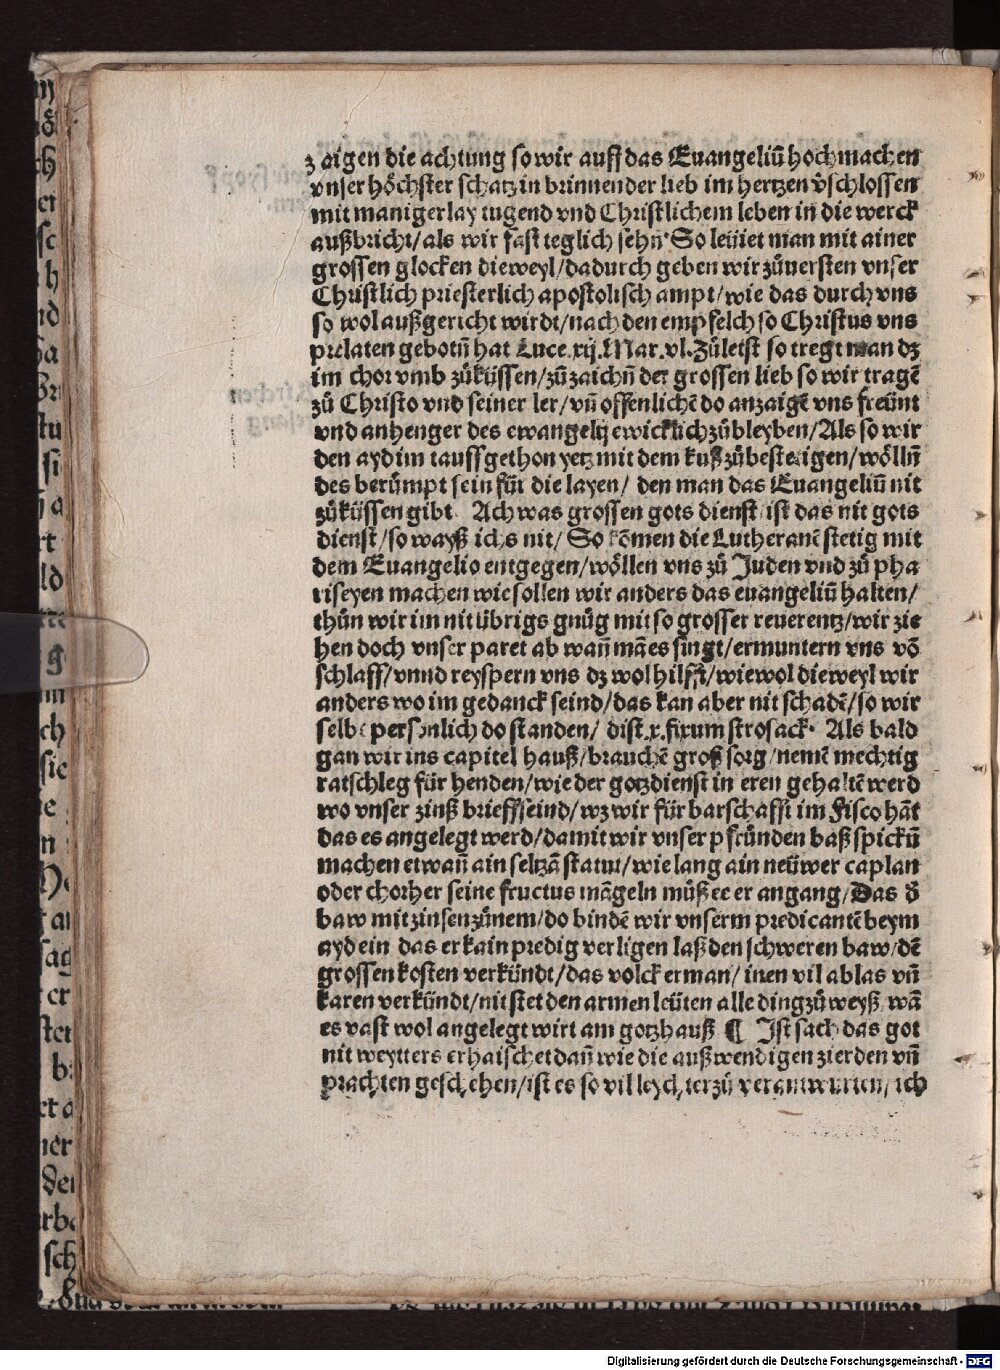 zaigen die achtung so wir auff das Euangeliū hoch machen
vnser höchster schatz in brinnender lieb im hertzen v̈schlossen
mit manigerlay tugend vnd Christlichem leben in die werck
außbricht/als wir fast teglich sehn̄. So leütet man mit ainer
grossen glocken dieweyl/dadurch geben wir zůuersten vnser
Christlich priesterlich apostolisch ampt/wie das durch vns
so wol außgericht wirdt/nach den empfelch so Christus vns
prelaten gebotn̄ hat Luce.xij.Mar.vl.Zůletst so tregt man dz
im chor vmb zůküssen/zů zaichn̄ der grossen lieb so wir tragē
zů Christo vnd seiner ler/vn̄ offenlichē do anzaigē vns freünt
vnd anhenger des ewangelij ewicklich zůbleyben/Als so wir
den ayd im tauff gethon yetz mit dem kuß zůbestetigen/wölln̄
des berümpt sein für die layen/ den man das Euangeliū nit
zůküssen gibt. Ach was grossen gots dienst/ist das nit gots
dienst/so wayß ichs nit/ So kömen die Lutheranē stetig mit
dem Euangelio entgegen/wöllen vns zů Juden vnd zů pha
riseyen machen wie sollen wir anders das euangeliū halten/
thůn wir im nit übrigs gnůg mit so grosser reuerentz/wir zie
hen doch vnser paret ab wañ mā es singt/ermuntern vns vō
schlaff/vnnd reyspern vns dz wol hilfft/wiewol dieweyl wir
anders wo im gedanck seind/das kan aber nit schadē/so wir
selbs persönlich do standen/ dist.x.fixum strosack. Als bald
gan wir ins capitel hauß/brauchē groß sorg/nemē mechtig
ratschleg für henden/wie der gotzdienst in eren gehaltē werd
wo vnser zinß brieff seind/wz wir für barschafft im Fisco hāt
das es angelegt werd/damit wir vnser pfründen baß spickn̄
machen etwan̄ ain seltzā statut/wie lang ain neüwer caplan
oder chorher seine fructus māgeln müß ee er angang/Das d̄
baw mit zinsen zůnem/do bindē wir vnserm predicantē beym
ayd ein das er kain predig verligen laß den schweren baw/dē
grossen kosten verkündt/das volck erman/inen vil ablas vn̄
karen verkündt/nit stet den armen leüten alle ding zů weyß wā
es vast wol angelegt wirt am gotzhauß ¶ Ist sach das got
nit weytters erhaischet dan̄ wie die außwendigen zierden vn̄
prachten geschehen/ist es so vil leychter zů verantwurten/ich
Digitalisierung gefördert durch die Deutsche Forschungsgemeinschaft - DFG